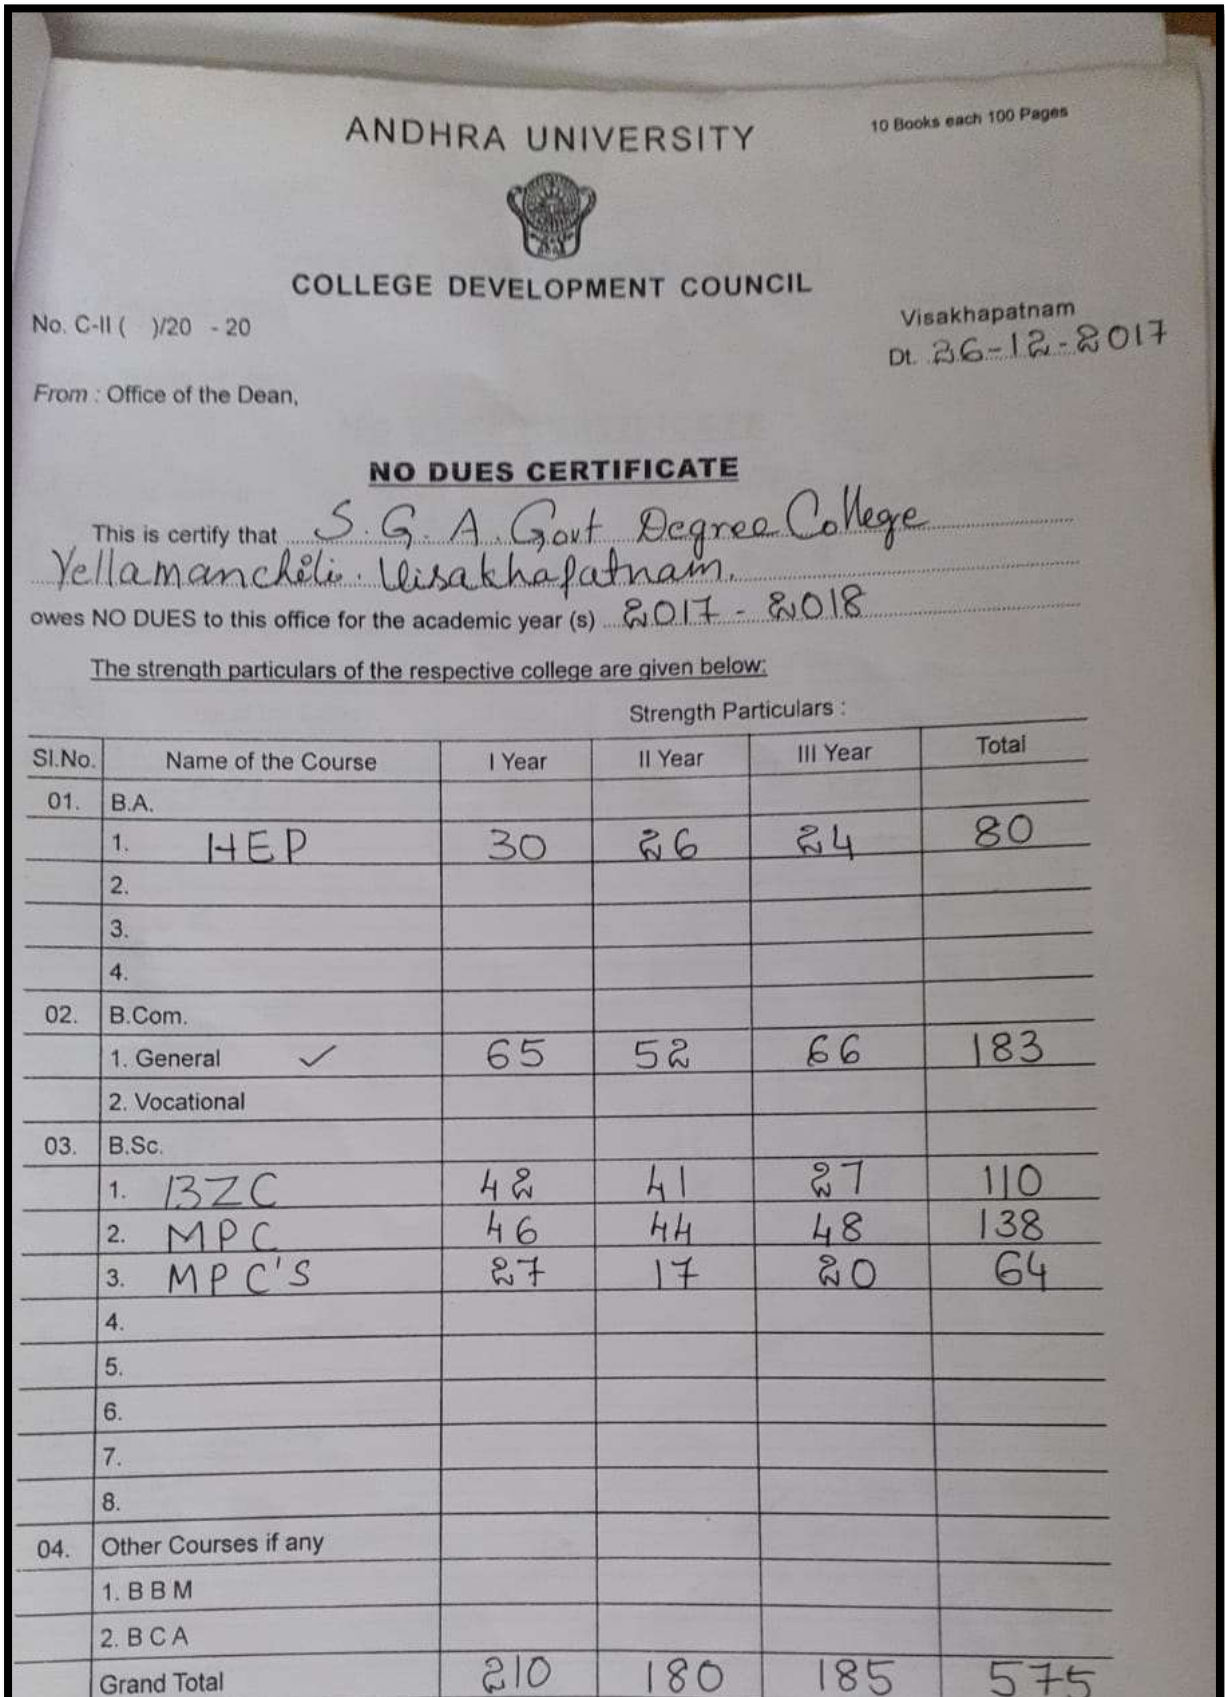 10 Books each 100 Pages
ANDHRA UNIVERSITY
COLLEGE DEVELOPMENT COUNCIL
No. C-II ( )/20 - 20
Visakhapatnam
Dt. 26-12-2017
From : Office of the Dean,
NO DUES CERTIFICATE
This is certify that S. G. A. Govt Degree College
Yellamancheli. Visakhapatnam.
owes NO DUES to this office for the academic year (s) 2017 - 2018
The strength particulars of the respective college are given below:
Strength Particulars :
Sl.No. Name of the Course I Year II Year III Year Total
01. B.A.
1. HEP 30 26 24 80
2.
3.
4.
02. B.Com.
1. General ✓ 65 52 66 183
2. Vocational
03. B.Sc.
1. BZC 42 41 27 110
2. MPC 46 44 48 138
3. MPC'S 27 17 20 64
4.
5.
6.
7.
8.
04. Other Courses if any
1. B B M
2. B C A
Grand Total 210 180 185 575